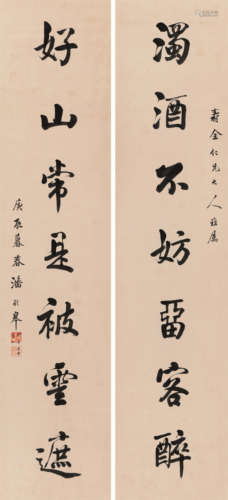 寿金仁兄大人雅属
濁酒不妨留客醉
好山常是被雲遮
庚辰暮春潘齡皋